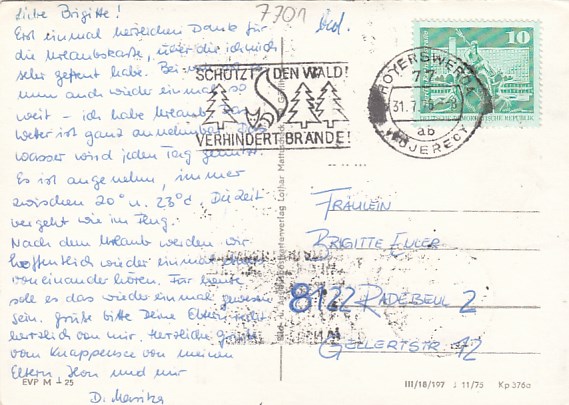 7701
Liebe Brigitte!
Erst einmal herzlichen Dank für
die Urlaubskarte, über die ich mich
sehr gefreut habe. Bei mir
nun auch wieder einmal so
weit - ich habe Urlaub. Das
Wetter ist ganz annehmbar, das
Wasser wird jeden Tag genutzt.
Es ist angenehm, immer
zwischen 20° u. 23°C. Die Zeit
vergeht wie im Flug.
Nach dem Urlaub werden wir
hoffentlich wieder einmal etwas
voneinander hören. Für heute
soll es das wieder einmal gewesen
sein. Grüße bitte Deine Eltern recht
herzlich von mir. Herzliche Grüße
vom Knappensee von meinen
Eltern, und mir
D. Marita
SCHÜTZT DEN WALD!
VERHINDERT BRÄNDE!
HOYERSWERDA
77
31.7.
ab
WOJERECY
10
DEUTSCHE DEMOKRATISCHE REPUBLIK
FRÄULEIN
BRIGITTE EULER
8122 RADEBEUL 2
GELLERTSTR. 12
EVP M -,25
III/18/197 J 11/75 Kp 376a